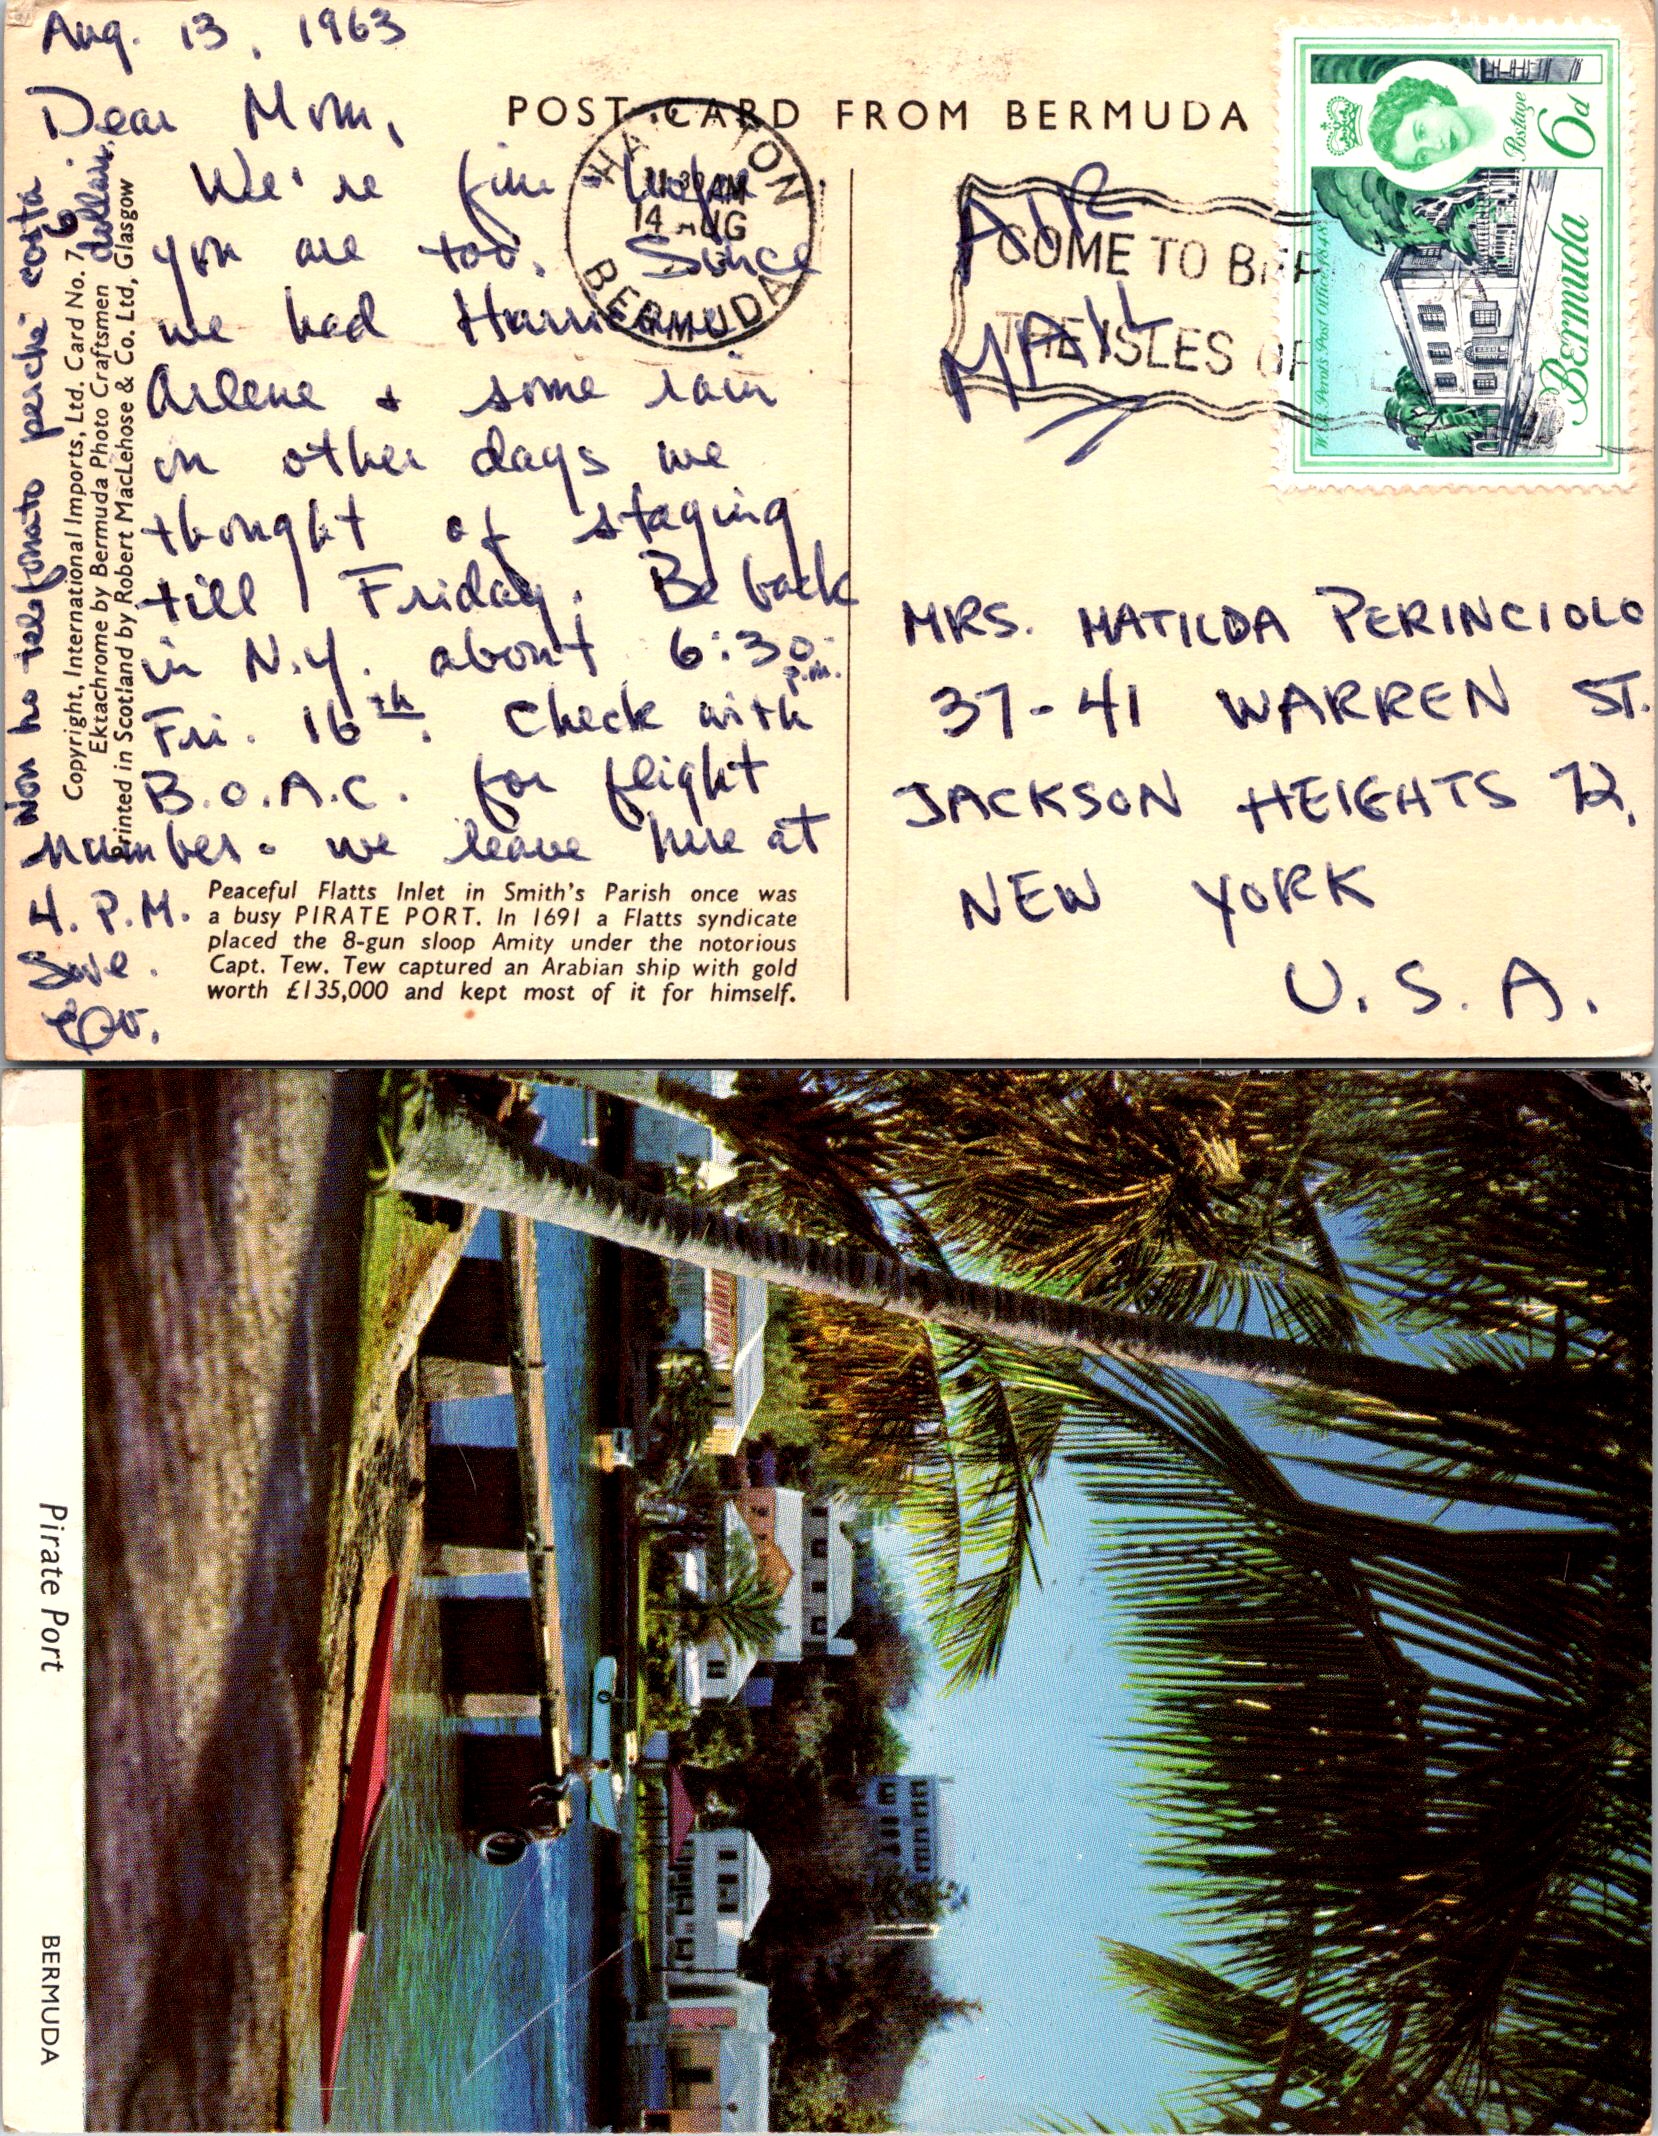 Aug. 13, 1963
Dear Mom,
We're fine hope
you are too. Since
we had Hurricane
Arlene & some rain
on other days we
thought of staying
till Friday. Be back
in N.Y. about 6:30
p.m.
Fri. 16th. Check with
B.O.A.C. for flight
number. we leave here at
4. P.M.
Love.
Non ho telefonato perchè costa
6 dollari.
Copyright, International Imports, Ltd. Card No. 7
Ektachrome by Bermuda Photo Craftsmen
Printed in Scotland by Robert MacLehose & Co. Ltd, Glasgow
Peaceful Flatts Inlet in Smith's Parish once was
a busy PIRATE PORT. In 1691 a Flatts syndicate
placed the 8-gun sloop Amity under the notorious
Capt. Tew. Tew captured an Arabian ship with gold
worth £135,000 and kept most of it for himself.
POST CARD FROM BERMUDA
14 AUG
BERMUDA
AIR
MAIL
COME TO
THE ISLES OF
Postage
6d
W.B. Perot's Post Office 1848
Bermuda
MRS. MATILDA PERINCIOLO
37-41 WARREN ST.
JACKSON HEIGHTS 72,
NEW YORK
U.S.A.
Pirate Port
BERMUDA